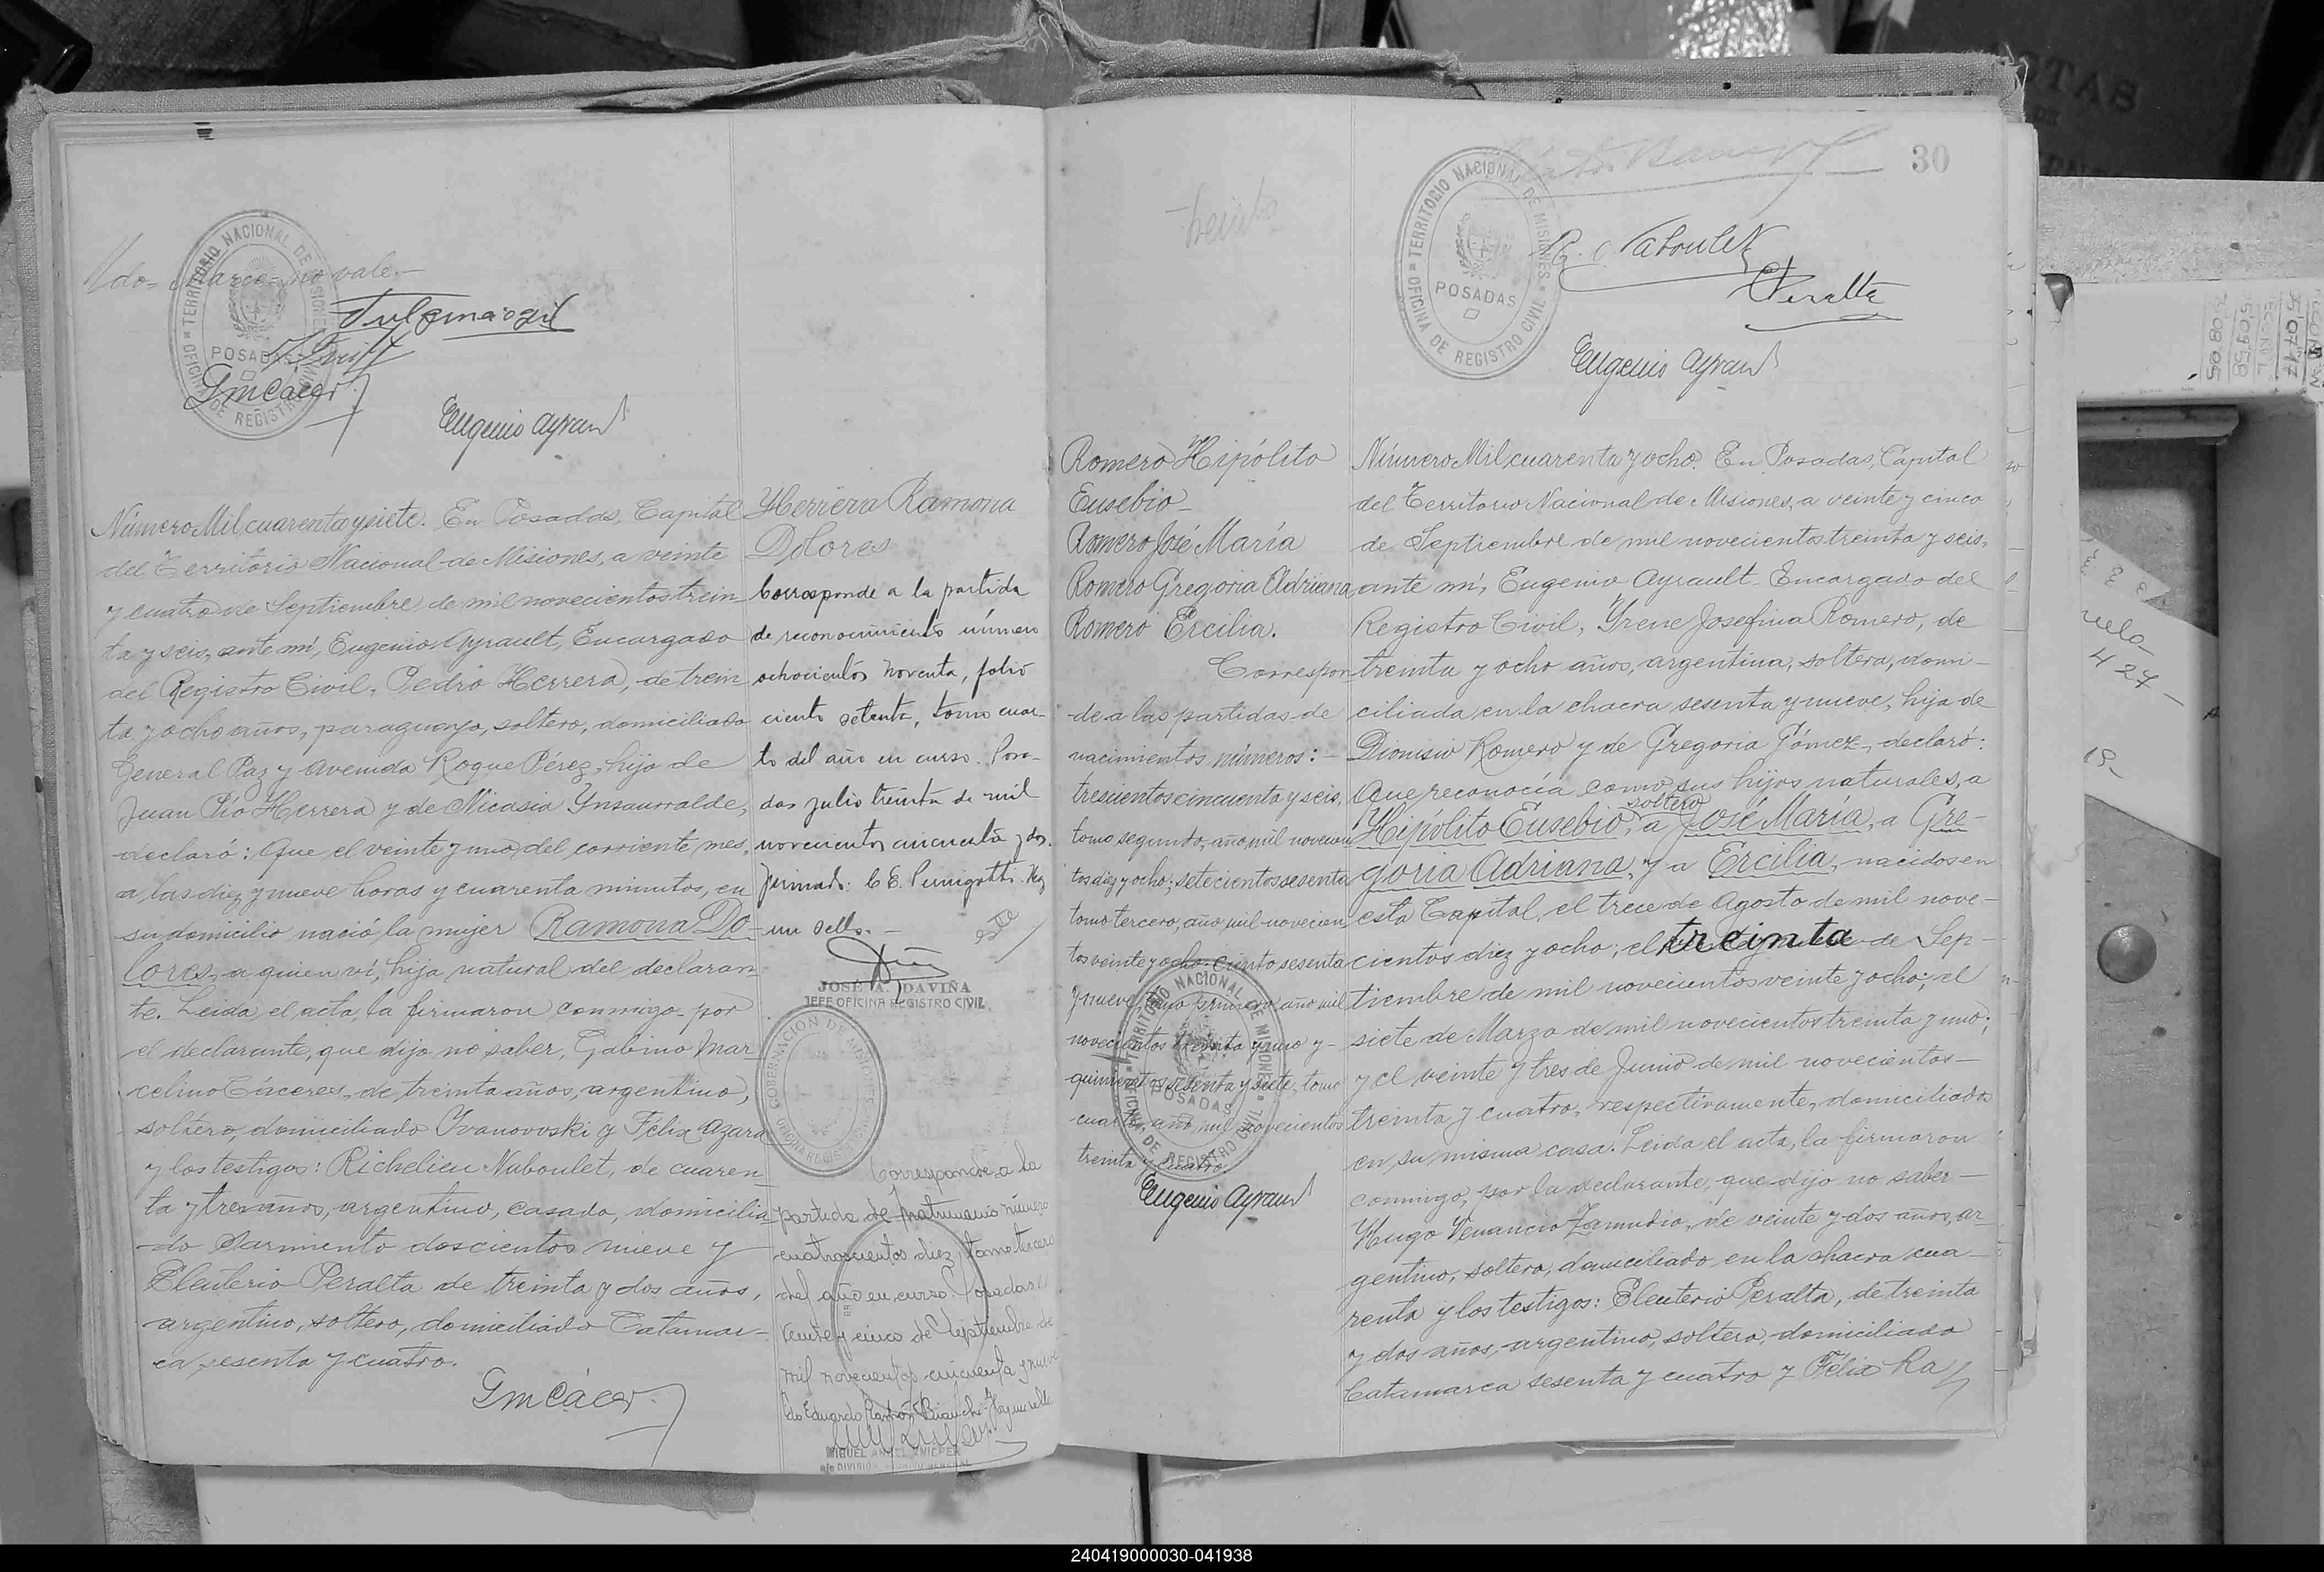 do= Marco= no vale.-
TERRITORIO NACIONAL DE MISIONES
OFICINA DE REGISTRO CIVIL
POSADAS
GmCácer
Eugenio Ayrault
Número Mil cuarenta y siete. En Posadas, Capital
del Territorio Nacional de Misiones, a veinte
y cuatro de Septiembre de mil novecientos trein-
ta y seis, ante mí, Eugenio Ayrault, Encargado
del Registro Civil, Pedro Herrera, de trein-
ta y ocho años, paraguayo, soltero, domiciliado
General Paz y Avenida Roque Pérez, hijo de
Juan Pío Herrera y de Nicasia Ynsaurralde,
declaró: Que el veinte y uno del corriente mes,
a las diez y nueve horas y cuarenta minutos, en
su domicilio nació la mujer Ramona Do-
lores, a quien ví, hija natural del declaran-
te. Leida el acta, la firmaron conmigo por
el declarante, que dijo no saber, Gabino Mar-
celino Cáceres, de treinta años, argentino,
soltero, domiciliado Ivanovoski y Félix Azara
y los testigos: Richelieu Naboulet, de cuaren-
ta y tres años, argentino, casado, domicilia-
do Sarmiento doscientos nueve y
Eleuterio Peralta de treinta y dos años,
argentino, soltero, domiciliado Catamar-
ca sesenta y cuatro.
GmCácer
Herrera Ramona
Dolores
Corresponde a la partida
de reconocimiento número
ochocientos noventa, folio
ciento setenta, tomo cuar-
to del año en curso. Posa-
das julio treinta de mil
novecientos cincuenta y dos.
firmado: C. E. Hay
un sello.-
JOSÉ A. DAVIÑA
JEFE OFICINA REGISTRO CIVIL
GOBERNACION DE MISIONES
OFICINA REGISTRO CIVIL
Corresponde a la
partida de matrimonio número
cuatrocientos diez, tomo tercero
del año en curso. Posadas
veinte y cinco de Septiembre de
mil novecientos cincuenta y nueve
Fdo Eduardo Ramón Bianchi-Hay un sello
MIGUEL ANGEL
30
Treinta
TERRITORIO NACIONAL DE MISIONES
OFICINA DE REGISTRO CIVIL
POSADAS
R. Naboulet
Peralta
Eugenio Ayrault
Romero Hipólito
Eusebio-
Romero José María
Romero Gregoria Adriana
Romero Ercilia.
Correspon-
de a las partidas de
nacimientos números:-
trescientos cincuenta y seis,
tomo segundo, año mil novecien-
tos diez y ocho; setecientos sesenta
tomo tercero, año mil novecien-
tos veinte y ocho; ciento sesenta
y nueve, tomo primero, año mil
novecientos treinta y uno y-
quinientos setenta y siete, tomo
cuarto, año mil novecientos
treinta y cuatro.
TERRITORIO NACIONAL DE MISIONES
OFICINA DE REGISTRO CIVIL
POSADAS
Eugenio Ayrault
Número Mil cuarenta y ocho. En Posadas, Capital
del Territorio Nacional de Misiones, a veinte y cinco
de Septiembre de mil novecientos treinta y seis,
ante mí, Eugenio Ayrault, Encargado del
Registro Civil, Yrene Josefina Romero, de
treinta y ocho años, argentina, soltera, domi-
ciliada en la chacra sesenta y nueve, hija de
Dionisio Romero y de Gregoria Gómez, declaró:
Que reconocía como sus hijos naturales, a
soltero
Hipólito Eusebio, a José María, a Gre-
goria Adriana, y a Ercilia, nacidos en
esta Capital, el trece de Agosto de mil nove-
cientos diez y ocho; el treinta de Sep-
tiembre de mil novecientos veinte y ocho; el
siete de Marzo de mil novecientos treinta y uno;
y el veinte y tres de Junio de mil novecientos-
treinta y cuatro, respectivamente, domiciliado
en su misma casa. Leida el acta, la firmaron
conmigo, por la declarante, que dijo no saber-
Hugo Venancio Zamudio, de veinte y dos años, ar-
gentino, soltero, domiciliado en la chacra cua-
renta y los testigos: Eleuterio Peralta, de treinta
y dos años, argentino, soltero, domiciliado
Catamarca sesenta y cuatro y Félix Ra
427
240419000030-041938